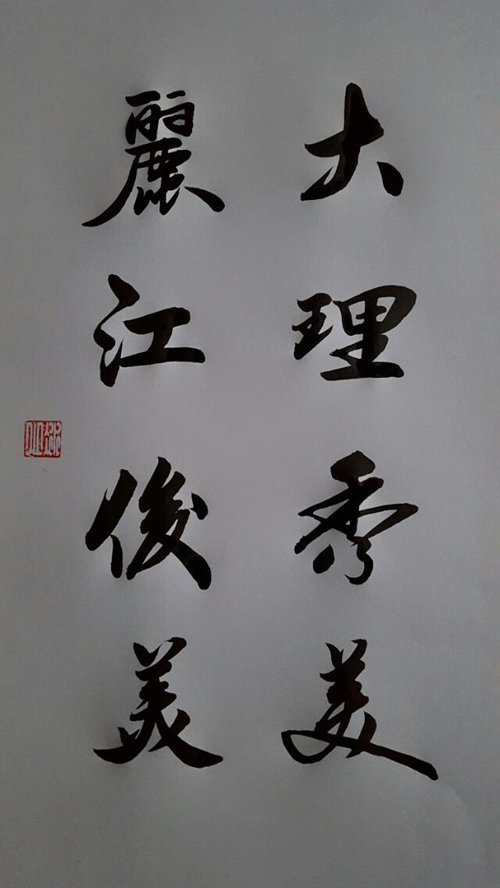 大理秀美
麗江俊美